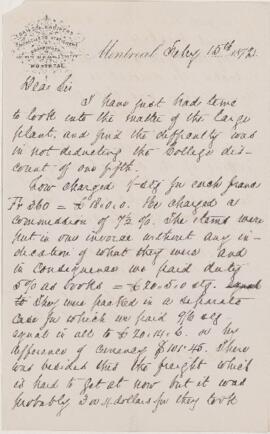 MONTREAL
Montreal Feby 15th 1872
Dear Sir
I have just had time
to look into the matter of the large
plant, and find the difficulty was
in not deducting the College dis-
count of one fifth.
You charged for each franc
Fr 360 = £18.0.0. He charged a
commission of 7½ %. The items were
put in our invoice without any in-
dication of what they were and
in consequence we paid duty
5% as books = £20.5.0 stg.
They were packed in a separate
case for which we paid 9/6 stg
equal in all to £20.14.6. or in
difference of currency $101.45. There
was besides this the freight which
is hard to get at now but it was
probably 3 or 4 dollars for they took